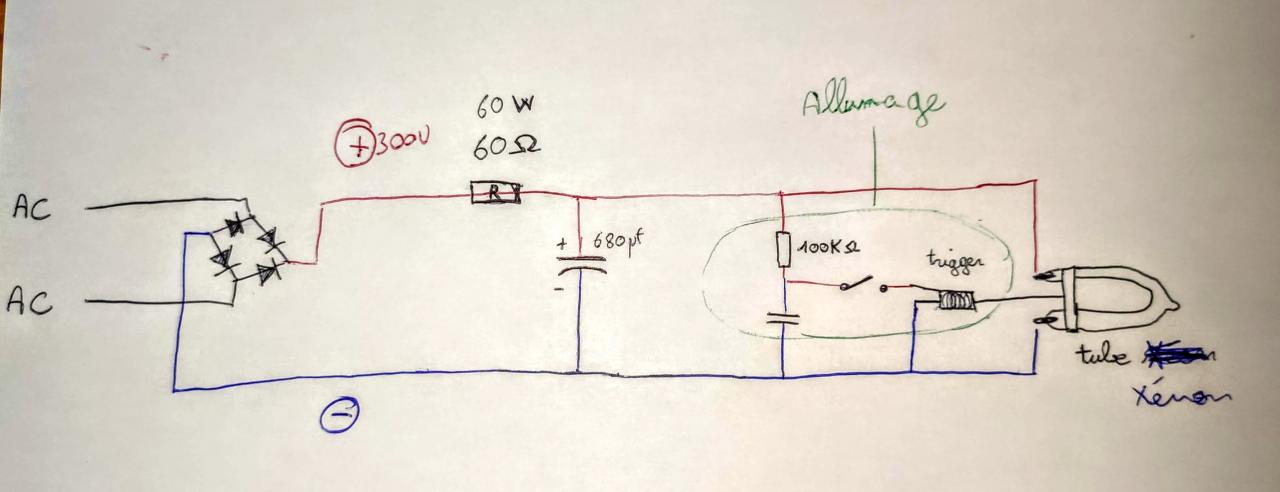 Allumage
60 W
60Ω
+ 300V
R
AC
AC
+ 680µf
-
100KΩ
trigger
tube
Xénon
-